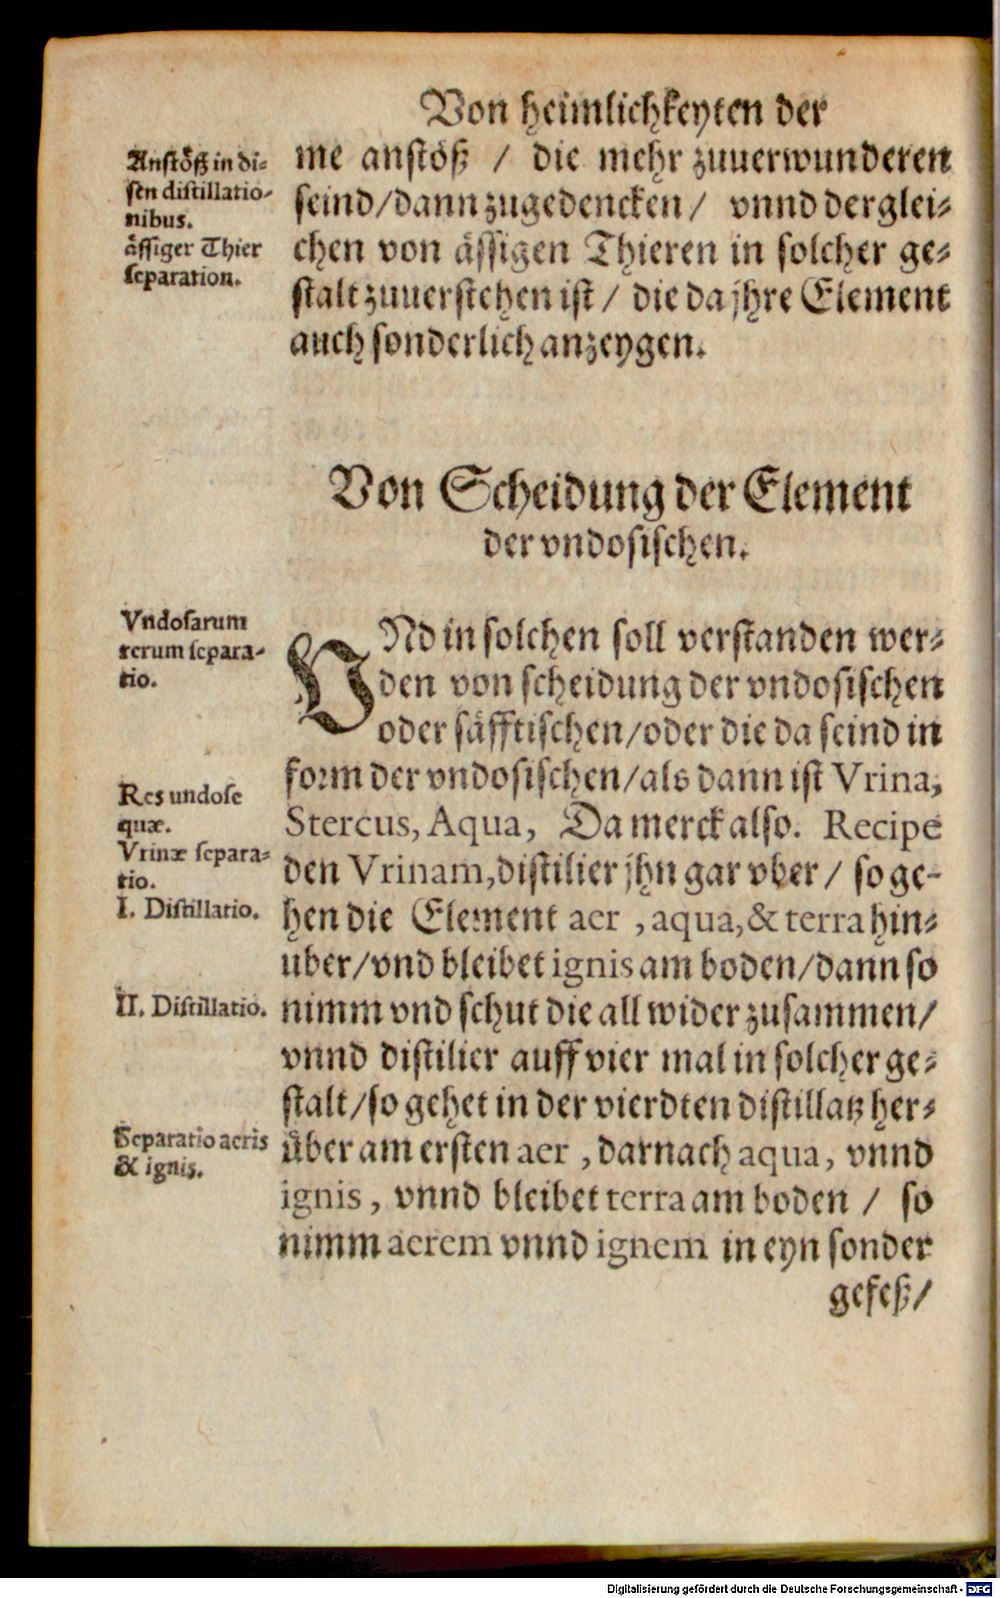 Von heimlichkeyten der
Anstöß in di⸗
sen distillatio⸗
nibus.
ässiger Thier
separation.
me anstöß / die mehr zuuerwunderen
seind/dann zugedencken/ vnnd derglei⸗
chen von ässigen Thieren in solcher ge⸗
stalt zuuerstehen ist / die da jhre Element
auch sonderlich anzeygen.
Von Scheidung der Element
der vndosischen.
Vndosarum
rerum separa-
tio.
Res undose
quæ.
Vrinæ separa-
tio.
I. Distillatio.
II. Distillatio.
Separatio aeris
& ignis.
VNd in solchen soll verstanden wer⸗
den von scheidung der vndosischen
oder säfftischen/oder die da seind in
form der vndosischen/als dann ist Vrina,
Stercus, Aqua, Da merck also. Recipe
den Vrinam, distilier jhn gar vber / so ge-
hen die Element aer , aqua, & terra hin⸗
uber/vnd bleibet ignis am boden/dann so
nimm vnd schut die all wider zusammen/
vnnd distilier auff vier mal in solcher ge⸗
stalt/so gehet in der vierdten distillatz her⸗
über am ersten aer , darnach aqua, vnnd
ignis, vnnd bleibet terra am boden / so
nimm aerem vnnd ignem in eyn sonder
gefeß/
Digitalisierung gefördert durch die Deutsche Forschungsgemeinschaft - DFG